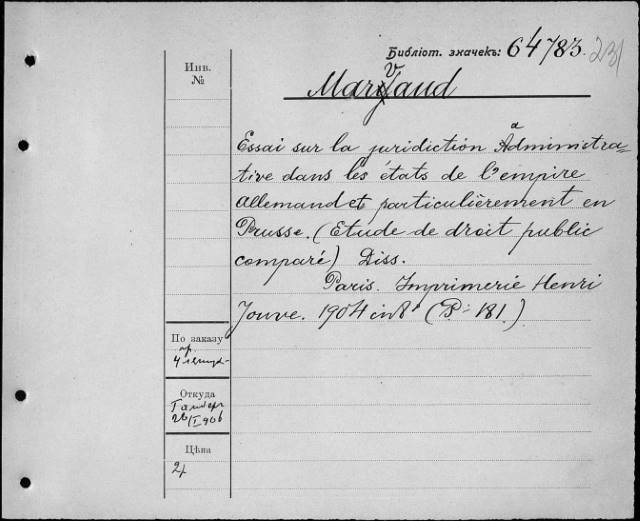 Библіот. значекъ: 64783.
231
Инв.
№
Marvaud
Essai sur la juridiction administra-
tive dans les états de l'empire
allemand et particulièrement en
Prusse. (Etude de droit public
comparé) Diss.
Paris. Imprimerie Henri
Jouve. 1904 in 8° (P. 181.)
По заказу
пр
Откуда
26/I 906
Цѣна
2f